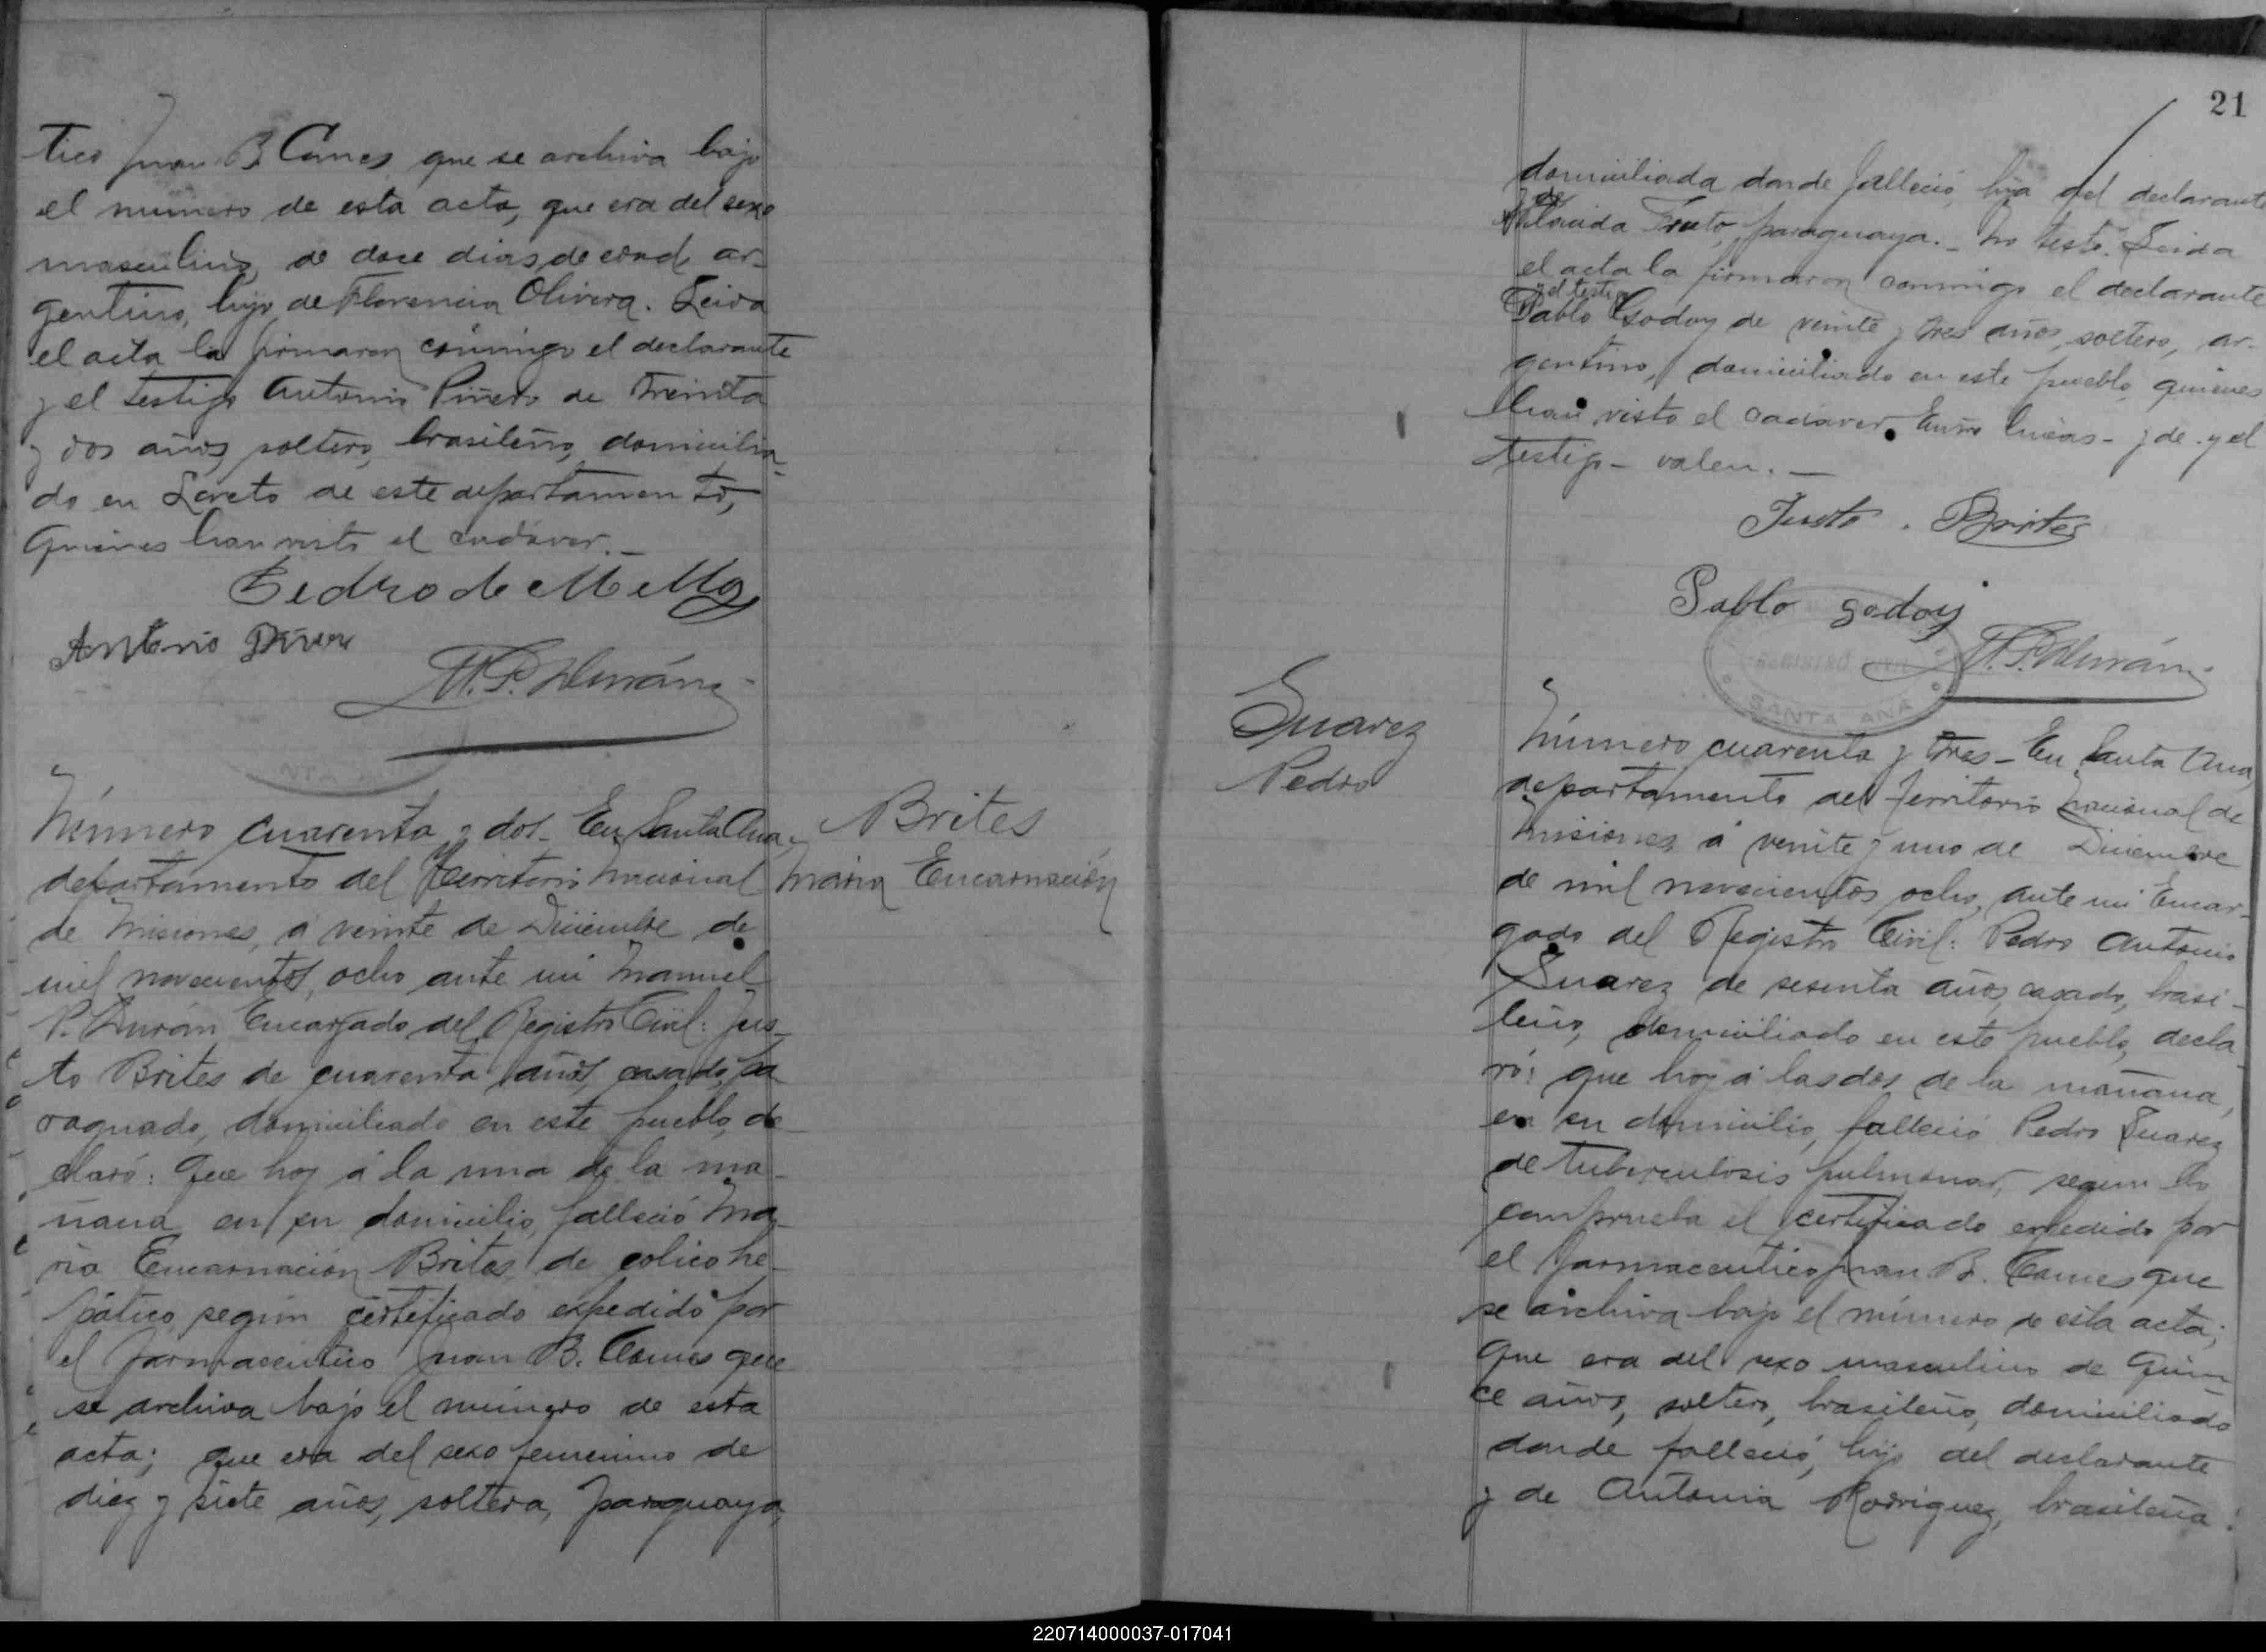 tico Juan B. Comes que se archiva bajo
el numero de esta acta, que era del sexo
masculino, de doce dias de edad, ar-
gentino, hijo de Florencia Olivera. Leida
el acta la firmaron conmigo el declarante
y el testigo Antonio Piñero de treinta
y dos años, soltero, brasileño, domicilia-
do en Loreto de este departamento,
quienes han visto el cadáver.—
Pedro de Mello
Antonio
M. P. Durán
Número cuarenta y dos— En Santa Ana,
departamento del Territorio Nacional
de Misiones, á veinte de Diciembre de
mil novecientos ocho ante mi Manuel
P. Durán, Encargado del Registro Civil: Jus-
to Brites de cuarenta años, casado, pa-
raguado, domiciliado en este pueblo, de-
claró: Que hoy á la una de la ma-
ñana en su domicilio, falleció Ma-
ria Encarnación Brites, de colico he-
pático, segun certificado expedido por
el farmacéutico Juan B. Comes que
se archiva bajo el número de esta
acta; que era del sexo femenino de
diez y siete años, soltera, paraguaya,
Brites
Maria Encarnación
21
domiciliada donde falleció, hija del declarante
y de
Fruto, paraguaya.— No testó. Leida
el acta la firmaron conmigo el declarante
y el testigo
Pablo Godoy de veinte y tres años, soltero, ar-
gentino, domiciliado en este pueblo, quienes
han visto el cadáver. Entre lineas— y de - y el
testigo— valen.—
Justo Brites
Pablo Godoy
M. P. Durán
REGISTRO CIVIL
SANTA ANA
Suarez
Pedro
Número cuarenta y tres— En Santa Ana,
departamento del Territorio Nacional de
Misiones, á veinte y uno de Diciembre
de mil novecientos ocho, ante mi Encar-
gado del Registro Civil: Pedro Antonio
Suarez de sesenta años, casado, brasi-
leño, domiciliado en este pueblo, decla-
ró: que hoy á las dos de la mañana,
en su domicilio, falleció Pedro Suarez
de tuberculosis pulmonar, segun lo
comprueba el certificado expedido por
el farmaceutico Juan B. Comes que
se archiva bajo el número de esta acta;
que era del sexo masculino de quin-
ce años, soltero, brasileño, domiciliado
donde falleció, hijo del declarante
y de Antonia Rodriguez, brasileña.
220714000037-017041